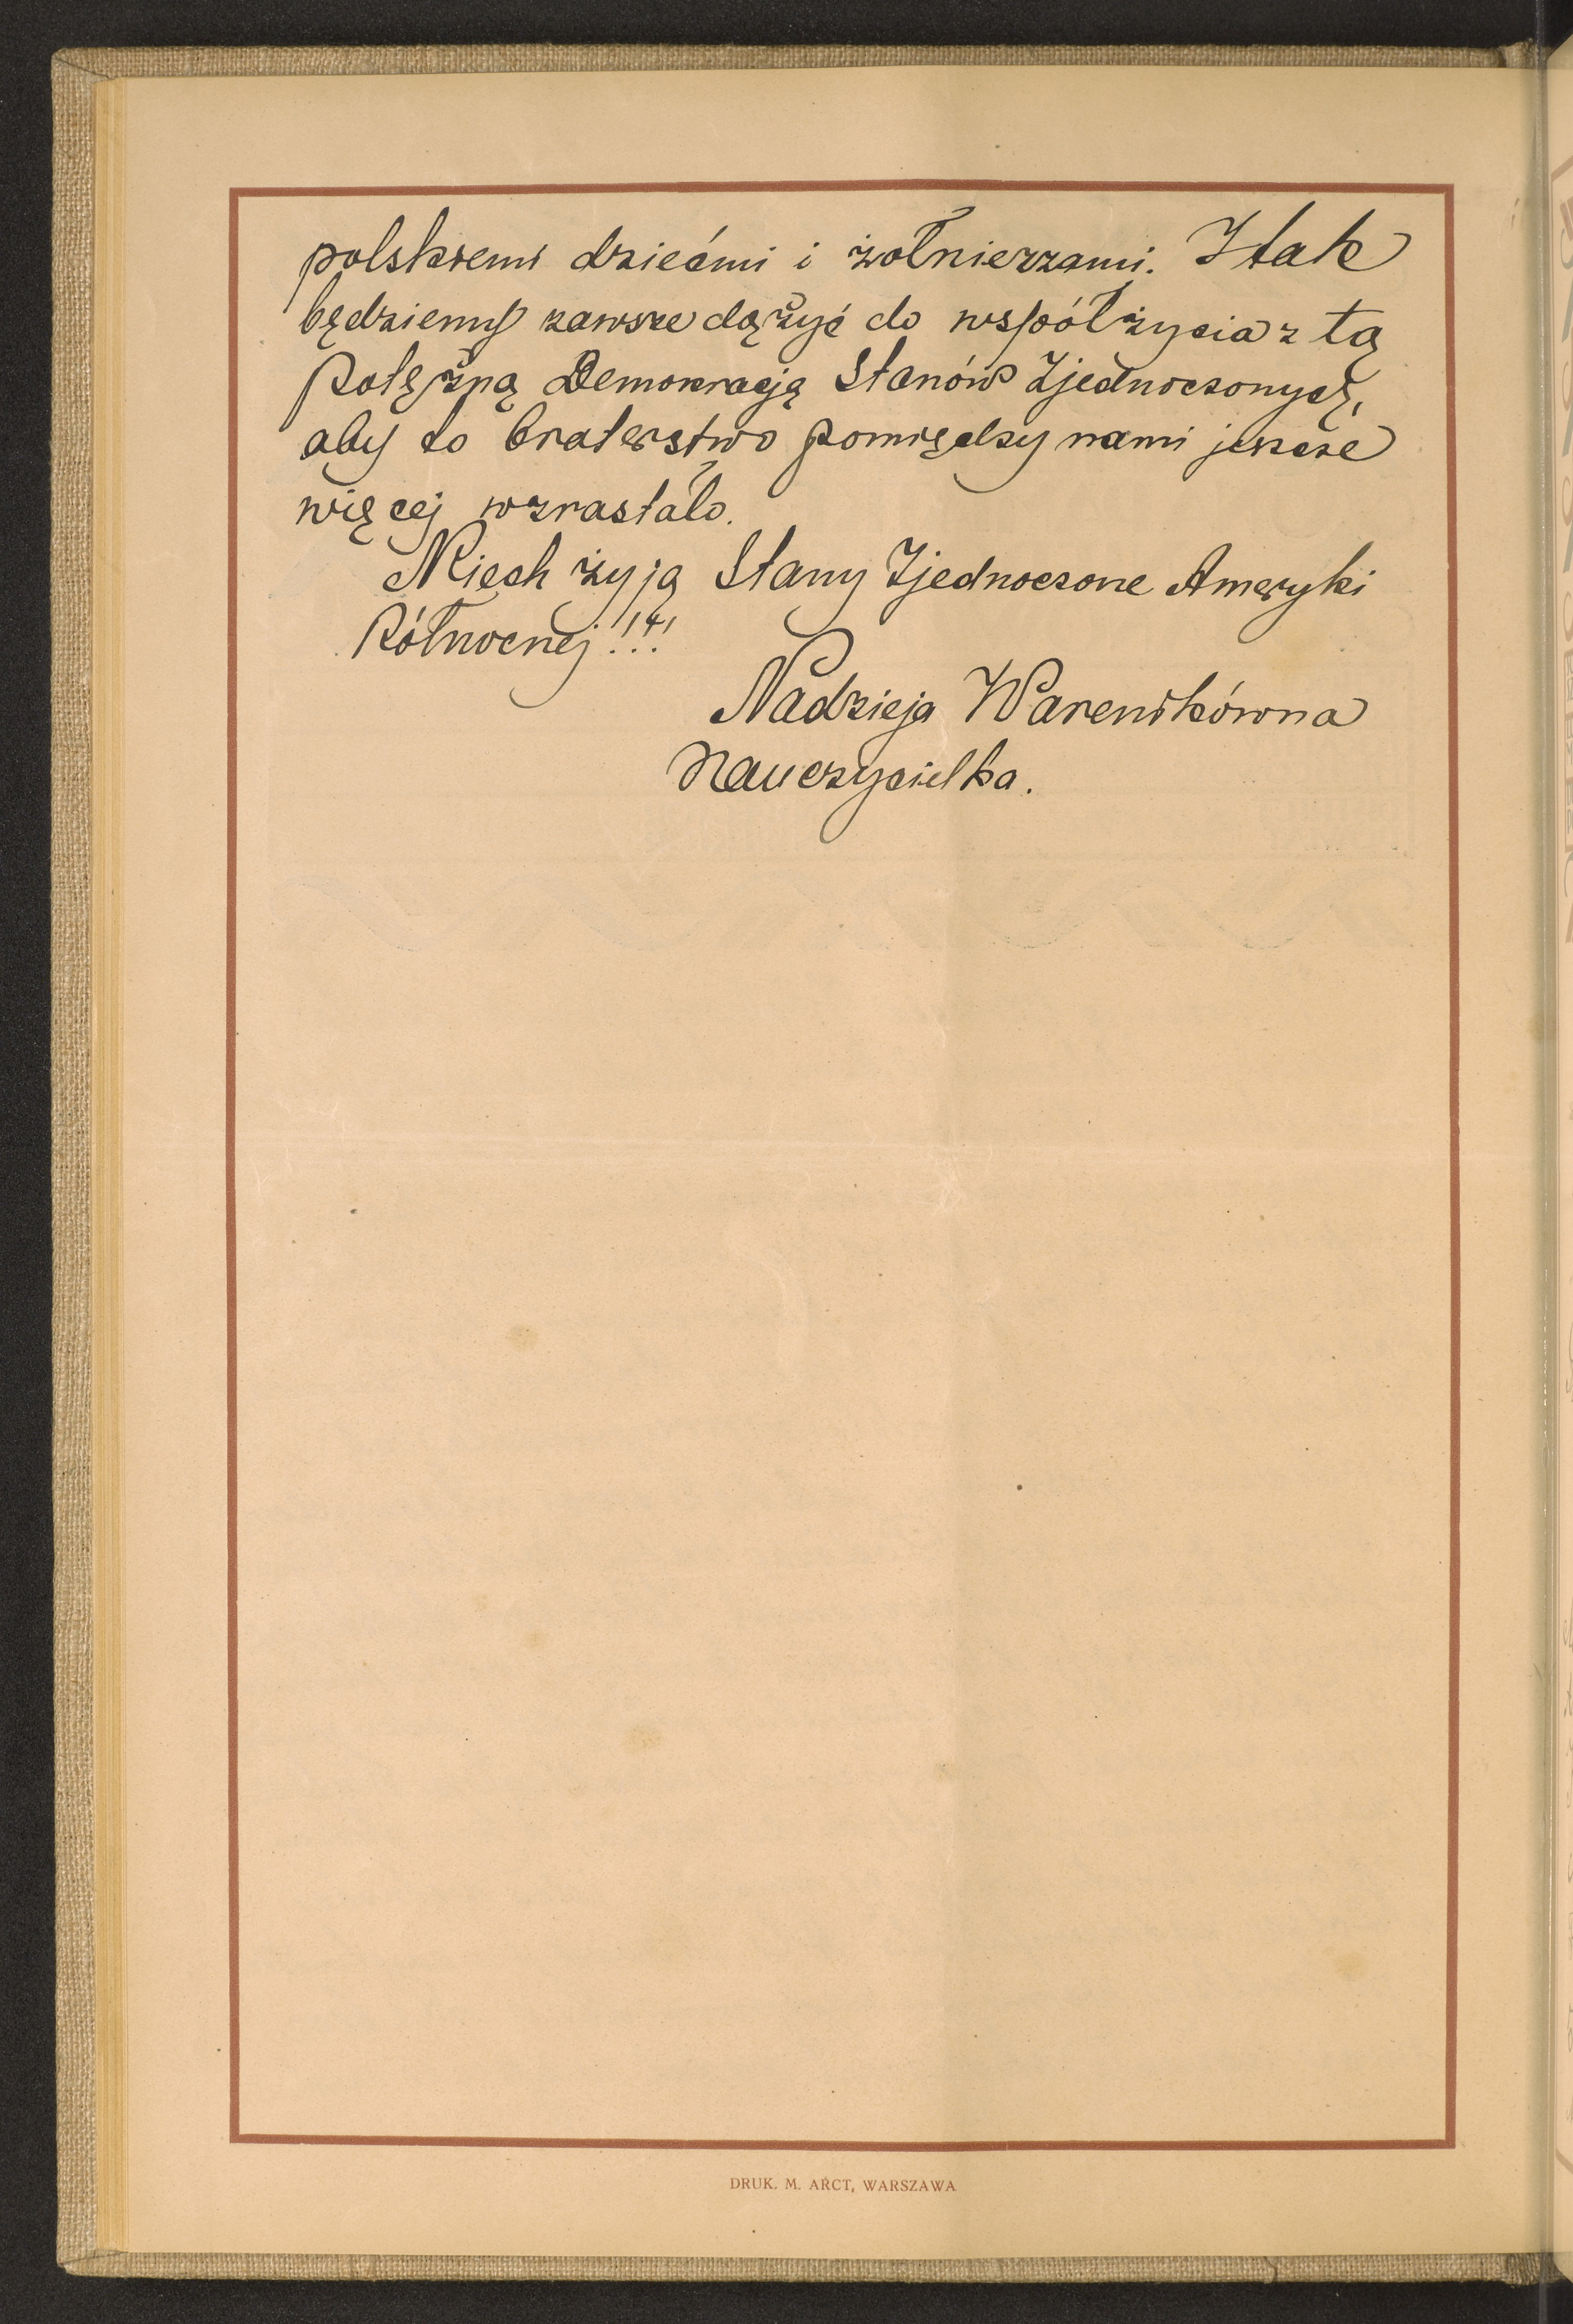 polskiemi dziećmi i żołnierzami. I tak
będziemy zawsze dążyć do współżycia z tą
Potężną Demokracją Stanów Zjednoczonych,
aby to braterstwo pomiędzy nami jeszcze
więcej wzrastało.
Niech żyją Stany Zjednoczone Ameryki
Północnej!!!
Nadzieja Warenikówna
Nauczycielka.
DRUK. M. ARCT, WARSZAWA